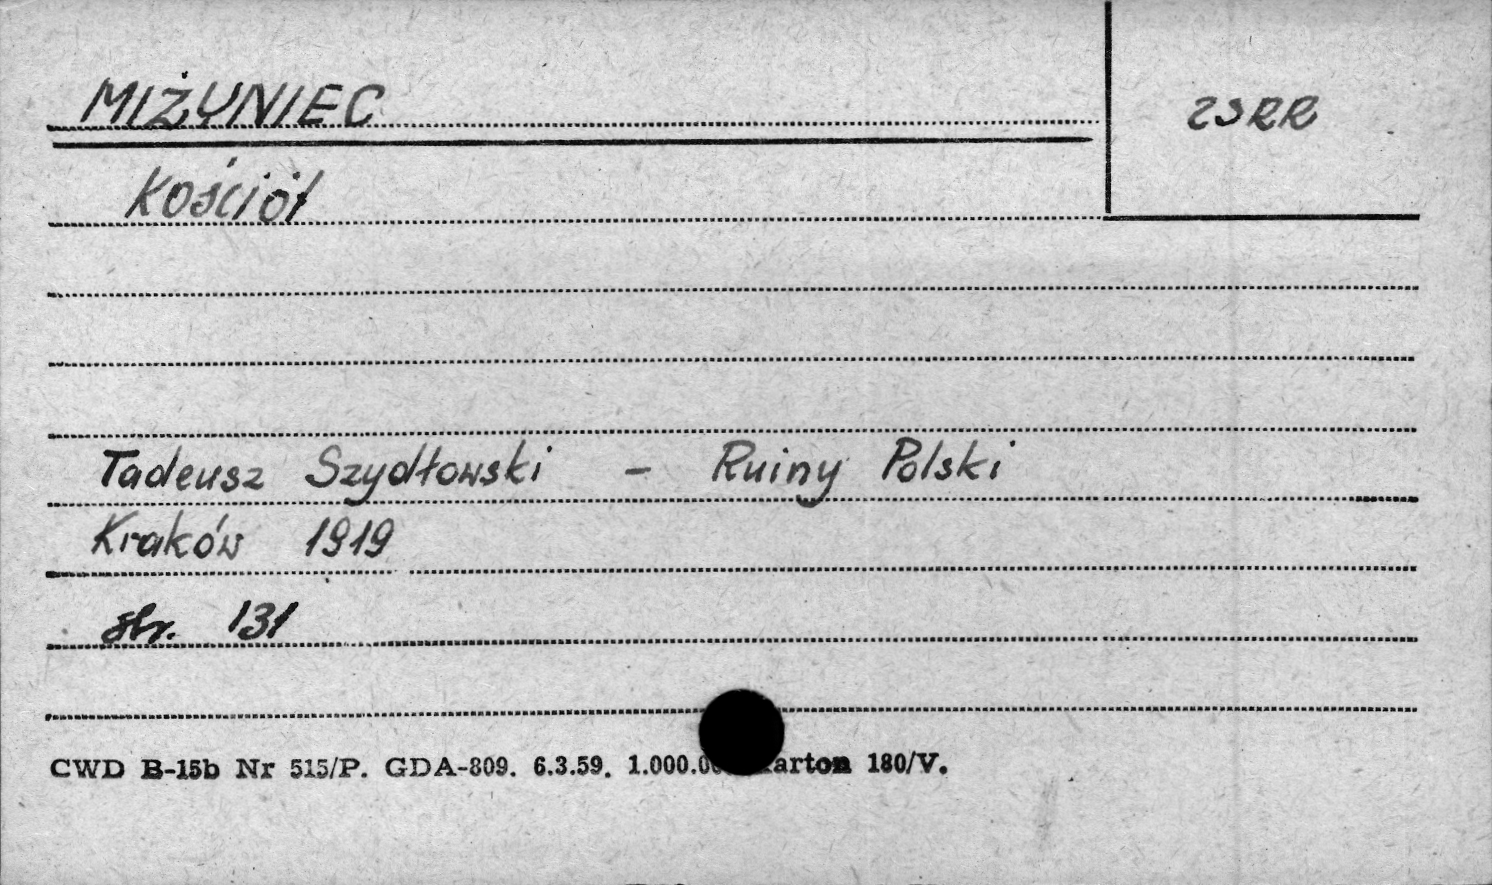 MIŻYNIEC
ZSRR
Kościół
Tadeusz Szydłowski - Ruiny Polski
Kraków 1919
str. 131
CWD B-15b Nr 515/P. GDA-809. 6.3.59. 180/V.